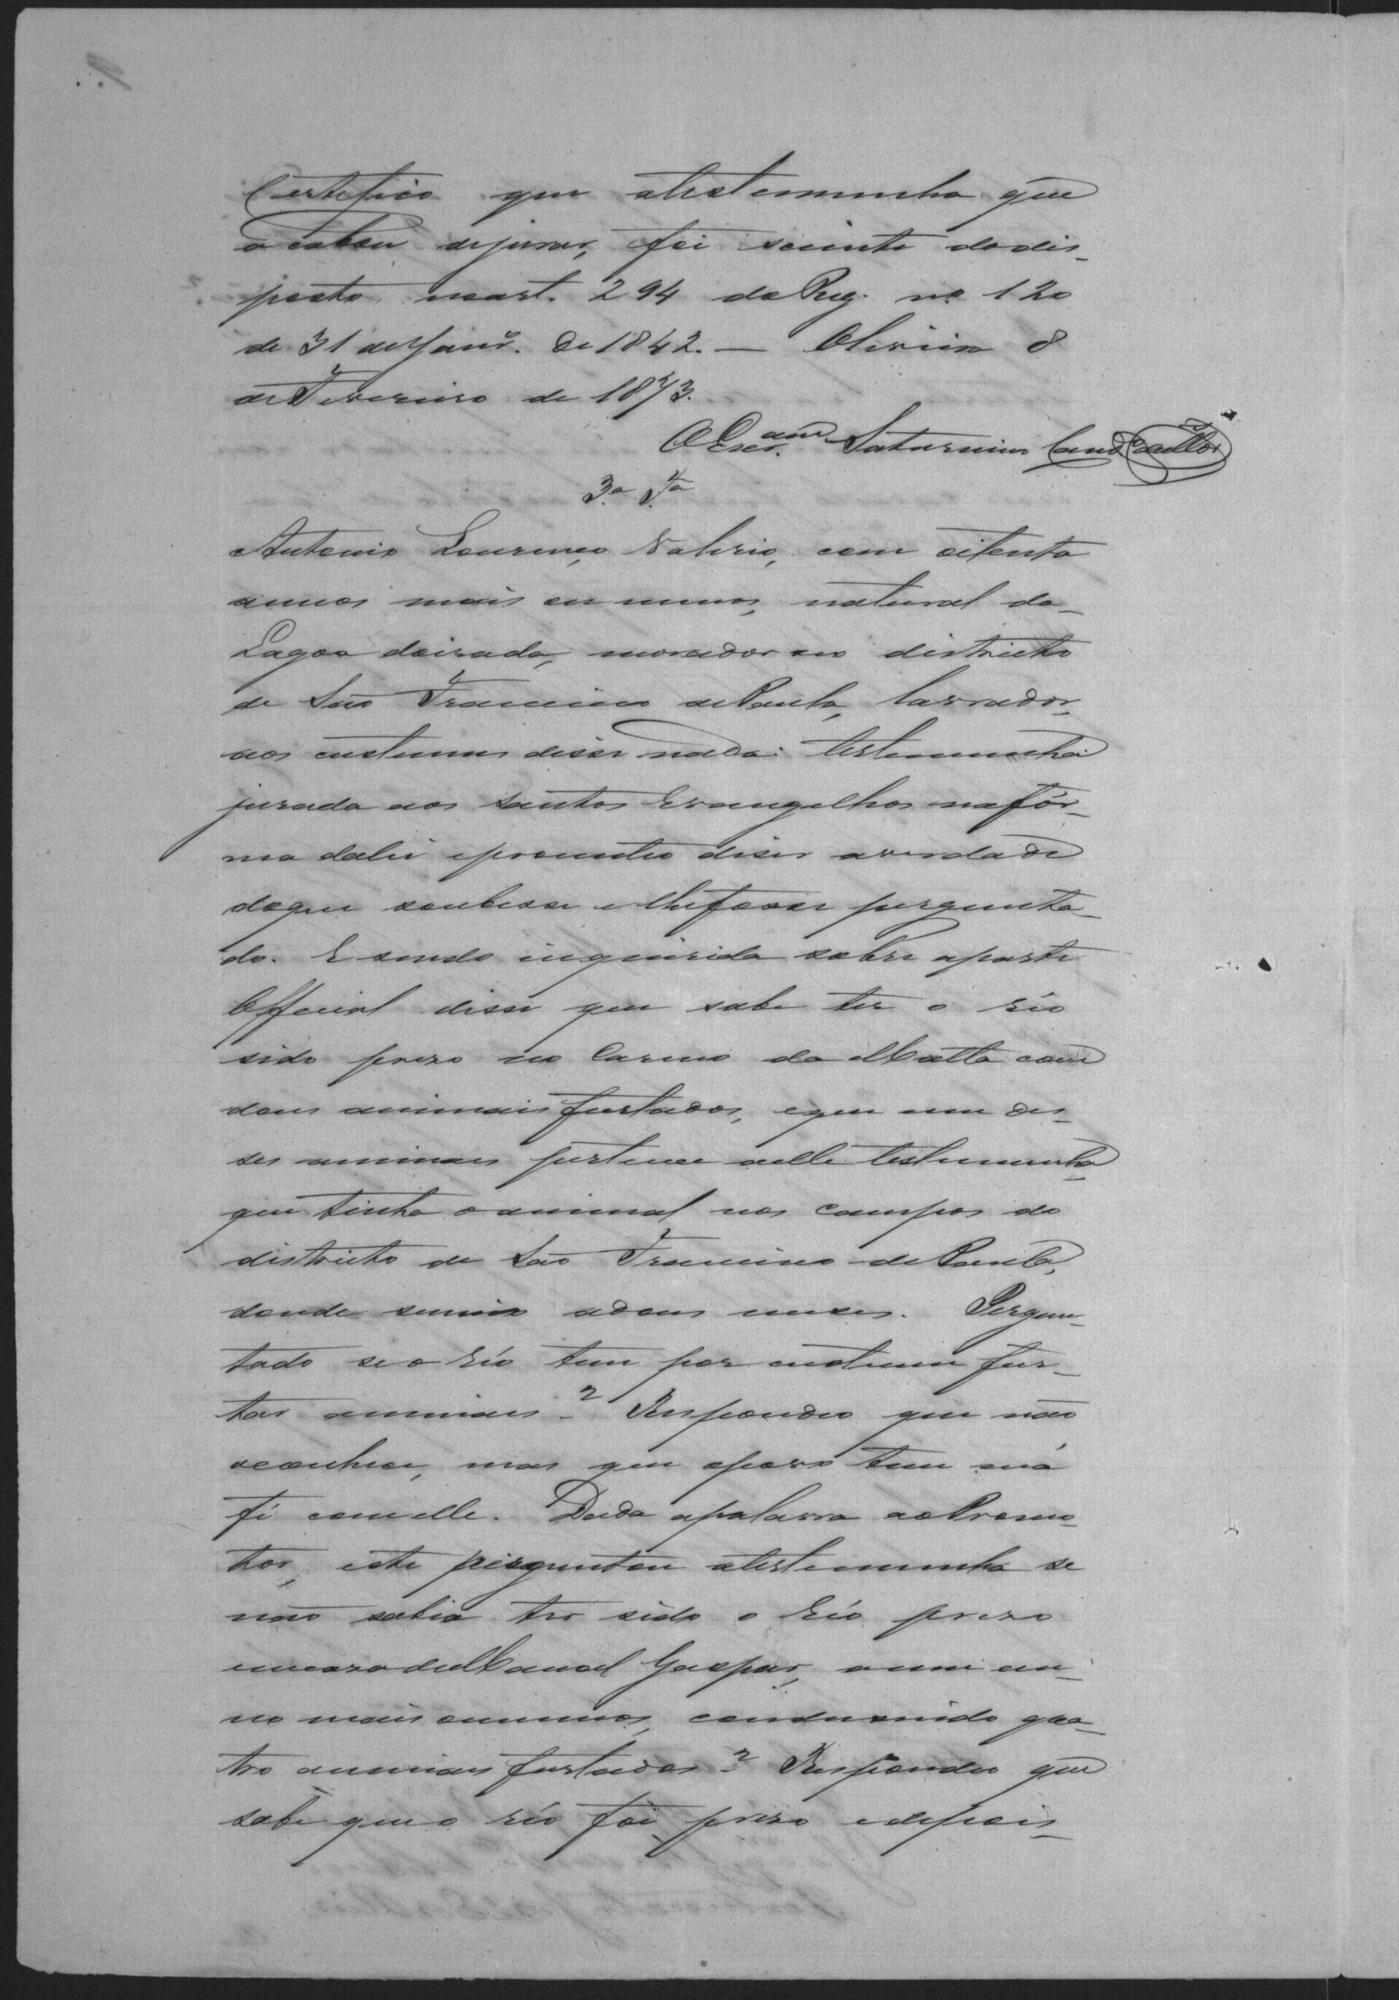 Certefico que atestemunha que
acabou dejurar, foi sciente dodis-
posto noart. 294 do Reg. nº 120
de 31 deJanrº. de 1842. — Oliveira 8
de Fevereiro de 1873.
O Escr.am Saturnino Cand
3.a T.a
Antonio Lourenço Valerio, com oitenta
annos mais ou menos, natural da
Lagoa doirada, morador no districto
de São Francisco dePaula, lavrador,
aos custumes disse nada: testemunha
jurada aos Santos Evangelhos nafór-
ma dalei eprometteo diser averdade
doque soubesse elhefosse pergunta-
do. E sendo inquirida sobre aparte
Official disse que sabe ter o réo
sido prezo no Carmo da Matta com
dous animais furtados, eque um des-
ses animaes pertence aelle testemunha
que tinha oanimal nos campos do
districto de São Francisco de Paula,
donde sumio adous mezes. Pergun-
tado se o réo tem por custume fur-
tar animaes? Respondeo que não
oconhece, mas que opovo tem má
fé comelle. Dada apalavra aoPromo-
tor, este perguntou atestemunha se
não sabia ter sido o réo prezo
emcasa deManoel Gaspar, a um an-
no mais oumenos, condusindo qua-
tro animaes furtados? Respondeo que
sabe que o réo foi prezo edepois